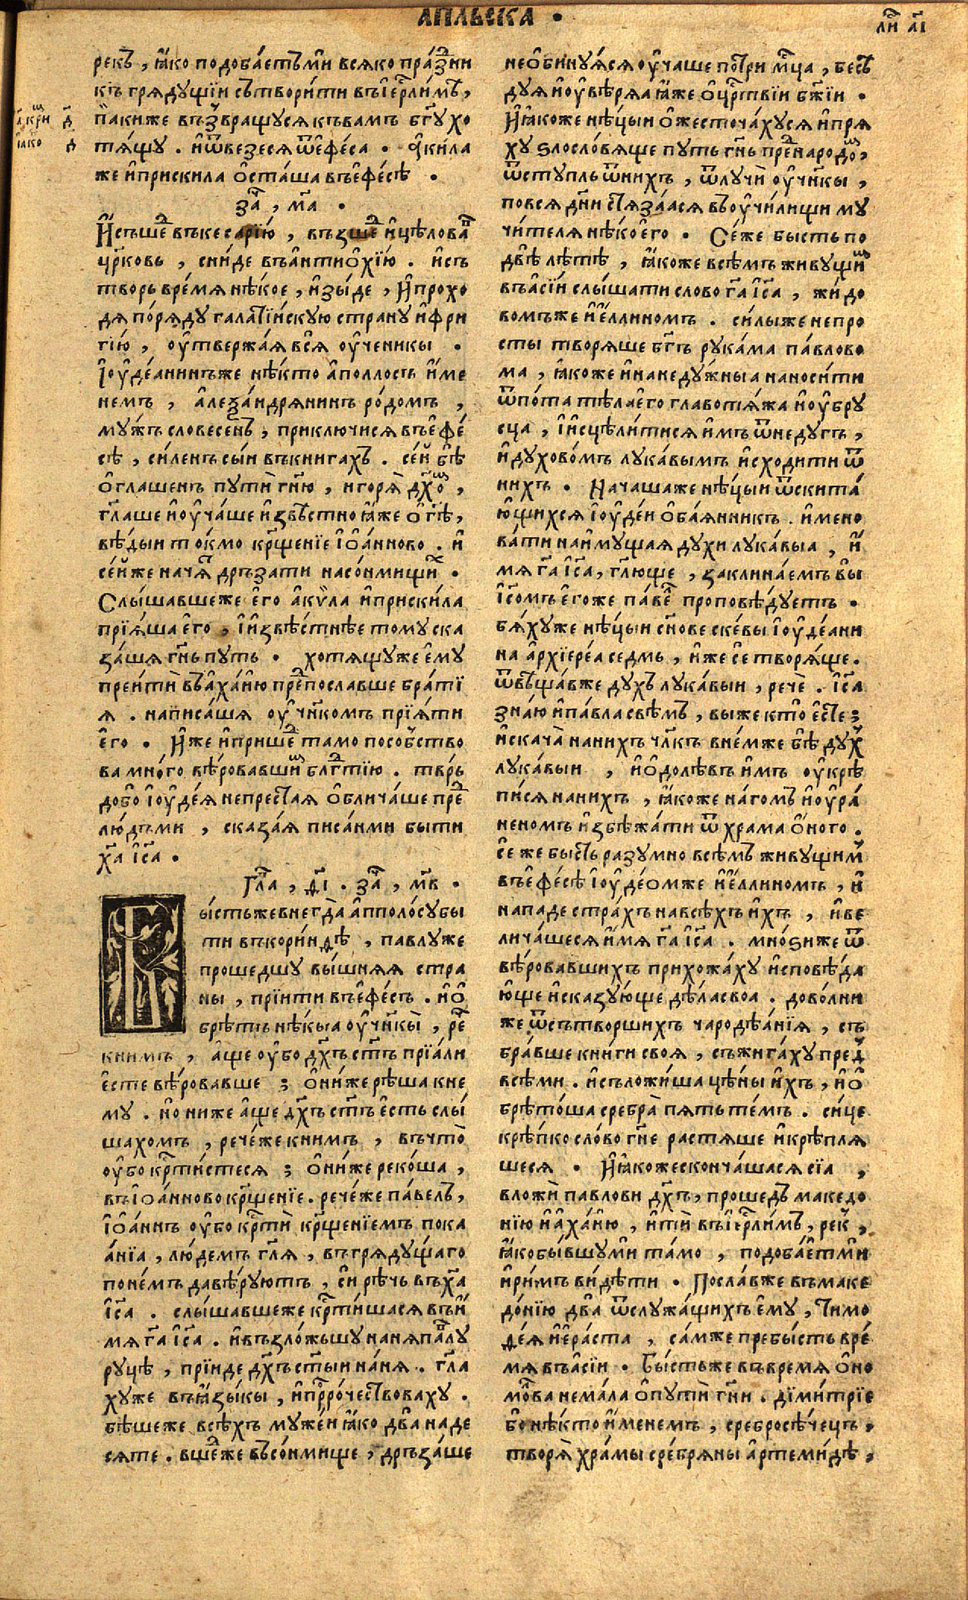 АПЛЬСКА .
ли҇ аі
рекъ , ꙗ҆́ко подоба́етъ ми всяко пра́зⷣни
къ гряду́щїи сътвори́ти въ і҆ерⷭли́мъ ,
па́ки же възвращу́ся къ вамъ бг҃у хо
тя́щу . и҆ ѿвезе́ся ѿ є҆фе́са . а҆ки́ла
же и҆ приски́ла ѻ҆ста́ша въ є҆фе́сѣ .
за҇ , м҃а .
И҆ съше́ⷣ въ кесарі́ю , възше́ⷣ и҆ цѣлова́ⷡ
цр҃ковь , сни́де въ а҆нтиѻ҆хі́ю . и҆ съ
творь вре́мя нѣ́кое , и҆зы́де , и҆ прохо
дя по́ряду галаті́йскую страну и҆ фри
гі́ю , ѹ҆твержа́я вся ѹ҆ченикы .
І҆ѹде́анинъ же нѣ́кто а҆поллосъ и҆́ме
немъ , а҆леѯа́ндрянинъ ро́домъ ,
му́жъ слове́сенъ , приключи́ся въ є҆фе́
сѣ , си́ленъ сы́и въ книгахъ . се́й бѣ
ѻ҆глашенъ пути́ гн҃ю , и горя́ дх҃оⷨ ,
гл҃аше и҆ ѹ҆ча́ше и҆звѣ́стно ꙗ҆́же ѡ҆ гі҃ѣ ,
вѣ́дыи токмо крщ҃енїе і҆ѡ҆́анново . и҆
се́й же нача́тъ дръза́ти на со́нмищиⷯ .
Слы́шавше же є҆го̀ а҆ки́ла и҆ приски́ла
прія́ша є҆го̀ , и҆ и҆звѣ́стнѣе тому ска
за́ша гн҃ь путь . хотя́щу же є҆му̀
преити́ въ а҆ха́ію преⷣпосла́вше бра́тї
я . написа́ша ѹ҆чн҃ко́мъ прїя́ти
є҆го̀ . И҆́же и҆ прише́ⷣ тамо пособ́ство
ва мно́го вѣ́ровавшиⷨ блгⷣтїю . твръ́
до бо і҆ѹде́я непреста́я ѡ҆блича́ше преⷣ
лю́дьми , сказа́я писа́нми быти
хⷭа і҆с҃а .
Гла҇ , ѳ҃і . за҇ , м҃в .
ы́сть же внегда̀ а҆пполо́су бы
ти въ кори́нѳѣ , павлу же
проше́дшу вы́шняя стра
ны , прїити въ є҆фе́съ . и҆ ѡ҆
брѣ́тъ нѣ́кыа ѹ҆чн҃кы̀ , реⷱ
к ни́мъ , а҆́ще ѹ҆́бо дх҃ъ ст҃ъ прїя́ли
є҆́сте вѣ́ровавше ; ѻ҆ни́ же рѣ́ша к не
му . но ниже а҆́ще дх҃ъ ст҃ъ є҆́сть слы́
шахомъ , рече́ же к ни́мъ , въ что̀
ѹ҆́бо крⷭти́стеся ; ѻ҆ни́же реко́ша ,
въ і҆ѡ҆́анново крщ҃енїе . рече́ же па́велъ ,
і҆ѡ҆́аннъ ѹ҆́бо крⷭтѝ крщ҃енїемъ пока
а́нїа , лю́демъ гл҃я , въ гряду́щаго
по не́мъ да вѣ́руютъ , си́ рѣ́чь въ хⷭа̀
і҆с҃а . слы́шавше же крⷭти́шася въ и҆́
мя гⷭа і҆с҃а . и҆ възло́жьшу на ня па́ⷡлу
ру́цѣ , прїи́де дх҃ъ ст҃ы́и на ня́ . гл҃а
ху́же въ ꙗ҆зы́кы , и҆ прⷪро́чествоваху .
бѣ́ше же всѣ́хъ му́жеи ꙗ҆́ко два на де
сяте . вше́ⷣ же въ со́нмище , дръза́ше
необину́яся ѹ҆ча́ше по́ три мцⷭ҇а , бесѣ
дуя и҆ ѹ҆вѣ́ряа ꙗ҆́же ѡ҆ црⷭтвїи бж҃їи .
И҆ ꙗ҆́коже нѣ́цыи ѡ҆жесточа́хуся и҆ пря́
ху ѕлосло́вяще путь гн҃ь преⷣ наро́доⷨ ,
ѿступль ѿ ни́хъ , ѿлучѝ ѹ҆чн҃кы ,
по вся дн҃и стяза́ася въ ѹ҆чи́лищи му
чи́теля нѣ́коего . Се́же бысть по
двѣ́ лѣ́тѣ , ꙗ҆́коже всѣ́мъ живу́щиⷨ
въ а҆сі́и слы́шати слово гⷭа і҆с҃а , жидо
во́мъ же и҆ є҆́ллиномъ . си́лы же непро
сты творя́ше бг҃ъ рука́ма па́влово
ма , ꙗ҆́коже и҆ на неду́жныа наноси́ти
ѿ по́та тѣ́ла є҆го̀ главотя́жа и҆ ѹ҆бру́
сца , и҆ и҆сцѣли́тися и҆́мъ ѿ неду́гъ ,
и҆ духово́мъ лука́вымъ и҆сходи́ти ѿ
ни́хъ . Нача́ша же нѣ́цыи ѿ скита́
ю҆щихся і҆ѹде́и ѻ҆бая́нникъ . и҆мено
ва́ти на и҆му́щая ду́хи лука́выа , и҆́
мя гⷭа і҆с҃а , гл҃ю́ще , заклина́емъ вы
і҆с҃омъ є҆го́же па́веⷧ проповѣ́дуетъ .
бя́ху же нѣ́цыи сн҃ове ске́вы і҆ѹде́ани
на а҆рхїере́а седмь , и҆́же сѐ творя́ще .
ѿвѣща́в же ду́хъ лука́выи , речѐ . і҆с҃а
зна́ю и҆ па́вла свѣ́мъ , вы́ же кто̀ є҆сте́ ;
и҆ скача̀ на ни́хъ чл҃къ в не́мже бѣ̀ ду́хъ
лука́выи , и҆ ѡ҆долѣ́въ и҆́мъ ѹ҆крѣ
пи́ся на ни́хъ , ꙗ҆́коже на́гомъ и҆ ѹ҆ра́
неномъ и҆збѣжа́ти ѿ храма ѻ҆́ного .
Се́ же бы́сть разумно всѣ́мъ живу́щиⷨ
въ є҆фе́сѣ і҆ѹде́ѡмже и҆ є҆́ллиномъ , и҆
нападе стра́хъ на всѣ́хъ и҆́хъ , и҆ ве
лича́шеся и҆́мя гⷭа і҆с҃а . мно́ѕи же ѿ
вѣ́ровавшихъ прихожа́ху и҆сповѣ́да
ю҆ще и҆ сказу́юще дѣ́ла своа . дово́лни
же ѿ сътво́ршихъ чародѣа́нїя , съ
бра́вше кни́ги своя , съжига́ху преⷣ
всѣ́ми . и҆ съложи́ша цѣ́ны и҆́хъ , и҆ ѡ҆
брѣто́ша сребра̀ пять те́мъ . си́це
крѣ́пко сло́во гн҃е растя́ше и҆ крѣ́пля
шеся . И҆ ꙗ҆́коже сконча́шася сїа ,
вложѝ павлови дх҃ъ , проше́дъ македо
нїю и҆ а҆ха́ию , и҆тѝ въ і҆ерⷭли́мъ , ре́къ ,
ꙗ҆́ко бы́вшу ми та́мо , подоба́етъ ми
и҆ ри́мъ ви́дѣти . Посла́в же въ маке
до́нїю два̀ ѿ служа́щихъ є҆му , Тимо
ѳе́я и҆ є҆ра́ста , са́мже пребы́сть вре́
мя въ а҆сі́и . Бы́стьже въ время ѻ҆но
мо́лва нема́ла ѡ҆ пути́ гн҃и . ди́митрїе
бо нѣ́кто и҆́менемъ , сребросѣ́чець ,
творя̀ хра́мы сре́бряны а҆ртеми́дѣ ,